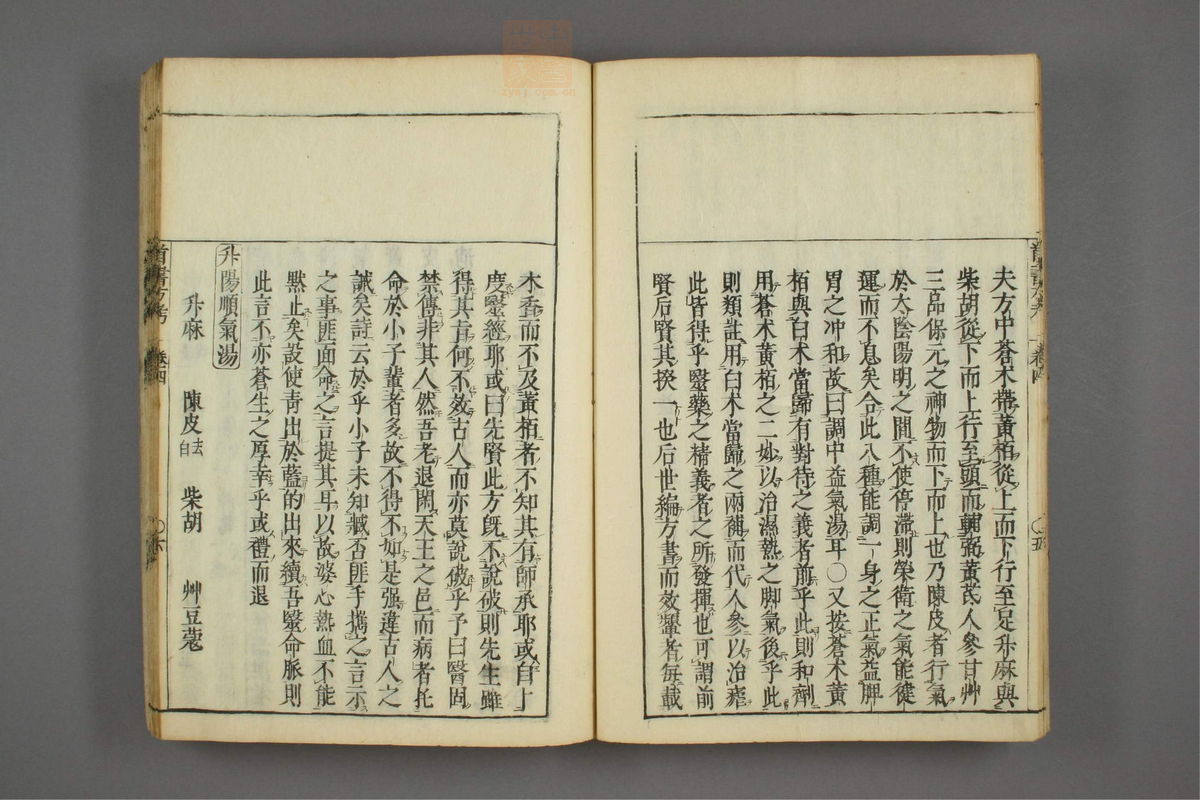 夫方中蒼朮帶黃栢從上而下行至足升麻與
柴胡從下而上行至頭而輔弼黃芪人參甘艸
三品保元之神物而下而上也乃陳皮者行氣
於太陰陽明之間不使停滯則榮衛之氣能健
運而不息矣合此八種能調一身之正氣益脾
胃之冲和故曰調中益氣湯耳〇又按蒼朮黃
栢與白朮當歸有對待之義者前乎此則和劑
用蒼朮黃栢之二妙以治濕熱之脚氣後乎此
則類註用白朮當歸之兩補而代人參以治瘧
此皆得乎醫藥之精義者之所發揮也可謂前
賢后賢其揆一也后世編方書而效顰者每載
木香而不及黃栢者不知其有師承耶或自上
度醫經耶或曰先賢此方既不說破則先生雖
得其旨何不效古人而亦莫說破乎予曰醫固
禁傳非其人然吾老退閑天王之邑而病者托
命於小子輩者多故不得不如是强違古人之
誡矣詩云於乎小子未知臧否匪手攜之言示
之事匪面命之言提其耳以故婆心熱血不能
默止矣設使靑出於藍的出來續吾醫命脈則
此言不亦蒼生之厚幸乎或禮而退
升陽順氣湯
升麻 陳皮去白 柴胡 艸豆蔻
首書方考 卷四 〇六
卷四 〇五